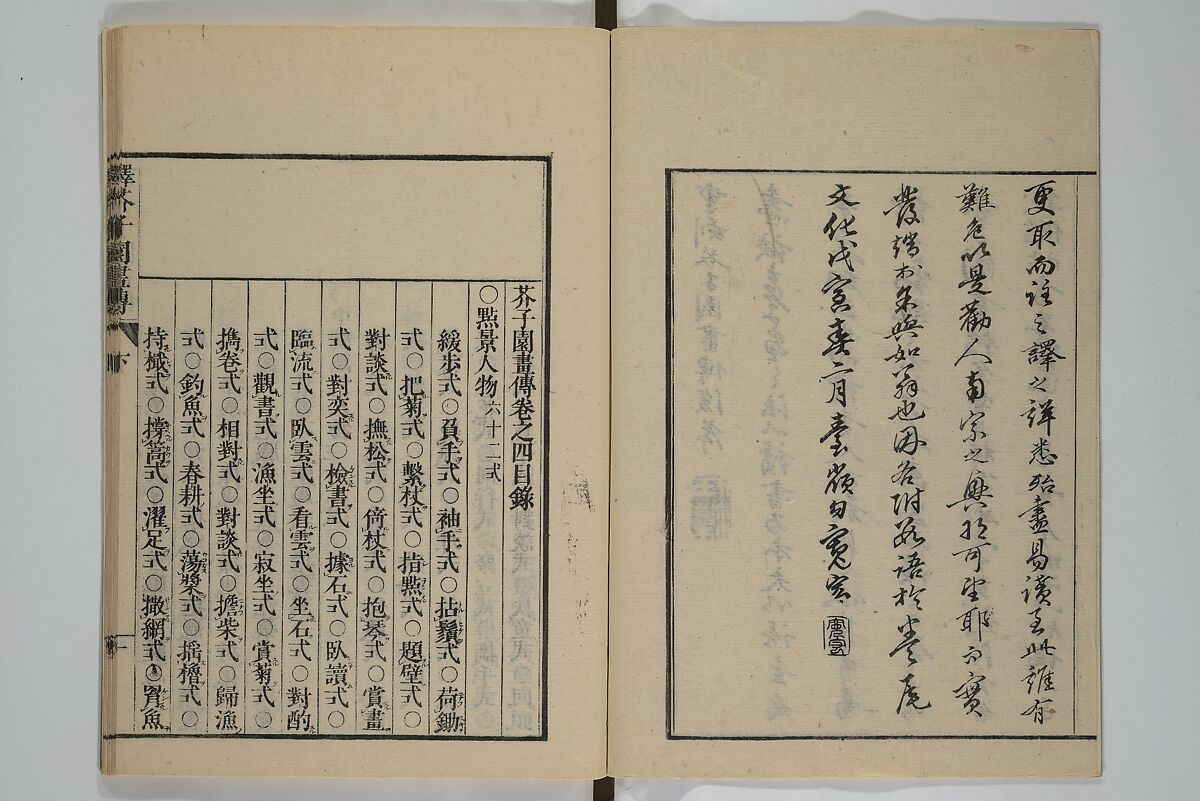 更取而註之譯之詳悉殆盡易讀至此誰有
難色以是勸人南宗之興
發端於 與如翁也因 附數語於卷尾
文化戊寅春二月
芥子園畫傳卷之四目錄
○點景人物六十二式
緩步式○負手式○袖手式○拈鬚式○荷鋤
式○把菊式○繫杖式○指點式○題壁式○
對談式○撫松式○倚杖式○抱琴式○賞畫
式○對奕式○檢書式○據石式○臥讀式○
臨流式○臥雲式○看雲式○坐石式○對酌
式○觀書式○漁坐式○寂坐式○賞菊式○
擕卷式○相對式○對談式○擔柴式○歸漁
式○釣魚式○春耕式○蕩槳式○揺櫓式○
持檝式○撑篙式○濯足式○撒網式○罾魚
譯芥子園畫傳 下 一